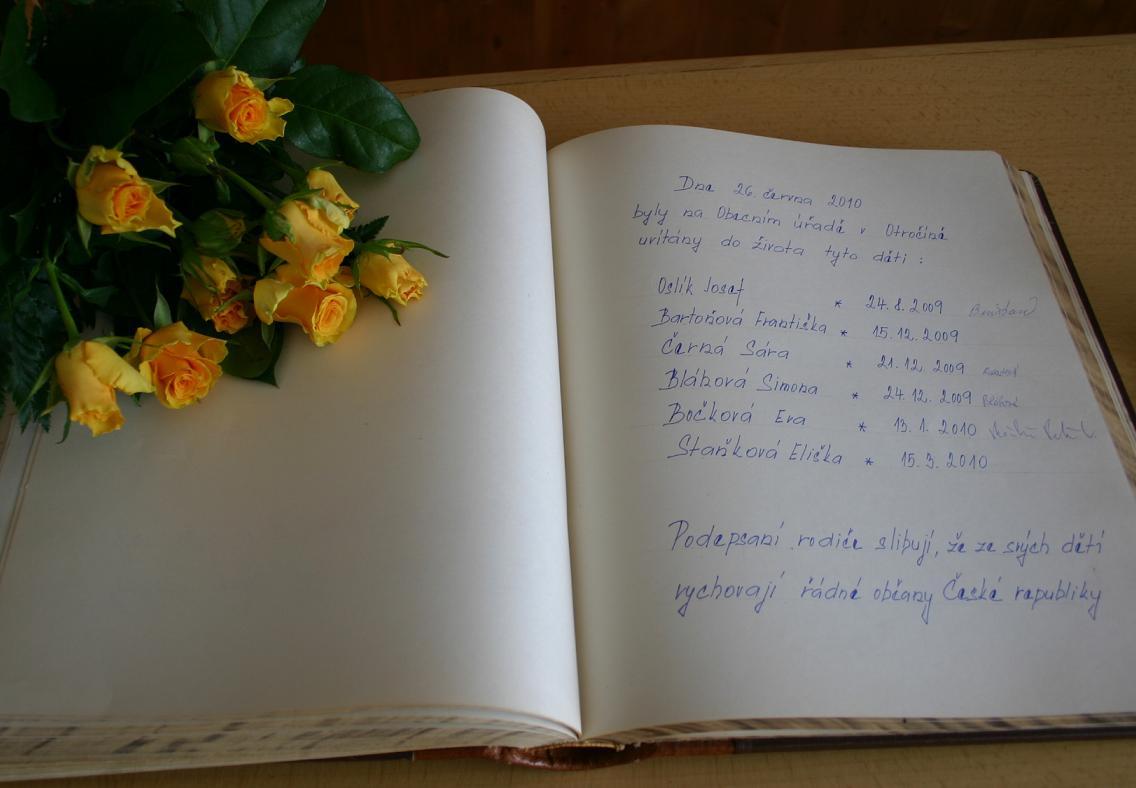 Dne 26. června 2010
byly na Obecním úřadě v Otročině
uvítány do života tyto děti :
Oslík Josef * 24. 8. 2009
Bartoňová Františka * 15. 12. 2009
Černá Sára * 21. 12. 2009
Bláhová Simona * 24. 12. 2009 Bláhová
Bočková Eva * 13. 1. 2010
Staňková Eliška * 15. 3. 2010
Podepsaní rodiče slibují, že ze svých dětí
vychovají řádné občany České republiky